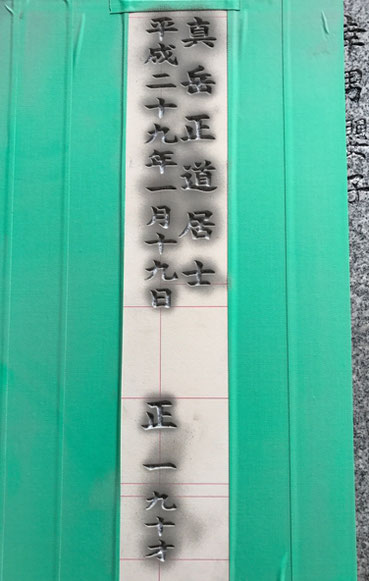 真岳正道居士
平成二十九年一月十九日 正一 九十才